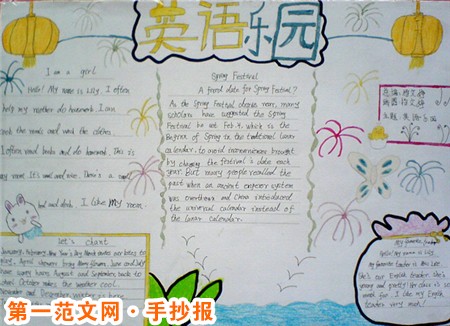 英语乐园
I am a girl
Hello! My name is Lily, I often
help my mother do housework. I can
wash the clothes.
I often read books and do homework. This is
my room. It's and nice. Here's a
bed and desk. I like My room.
Spring Festival
A fixed date for Spring Festival?
As the Spring Festival draws near, many
scholars have suggested the Spring
Festival be set Feb 4, which is the
Begin of Spring in the traditional lunar
calendar, to avoid inconvenience brought
by changing the festival's date each
year. But many people recalled the
past when an ancient emperor system
was overthrown and China introduced
the universal calendar instead of
the lunar calendar.
let's chant
January, February, New Year's Day
May June and July
August and September back to
school October makes the weather cool.
November and December winter is here
my favorite teacher
Hello! My name is Lily.
my favorite teacher is Miss Lee
She's our English teacher. She's
young and pretty! Her class is so
fun. I like my English
teacher very much!
第一范文网·手抄报